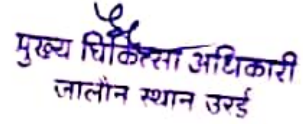 मुख्य चिकित्सा अधिकारी
जालौन स्थान उरई